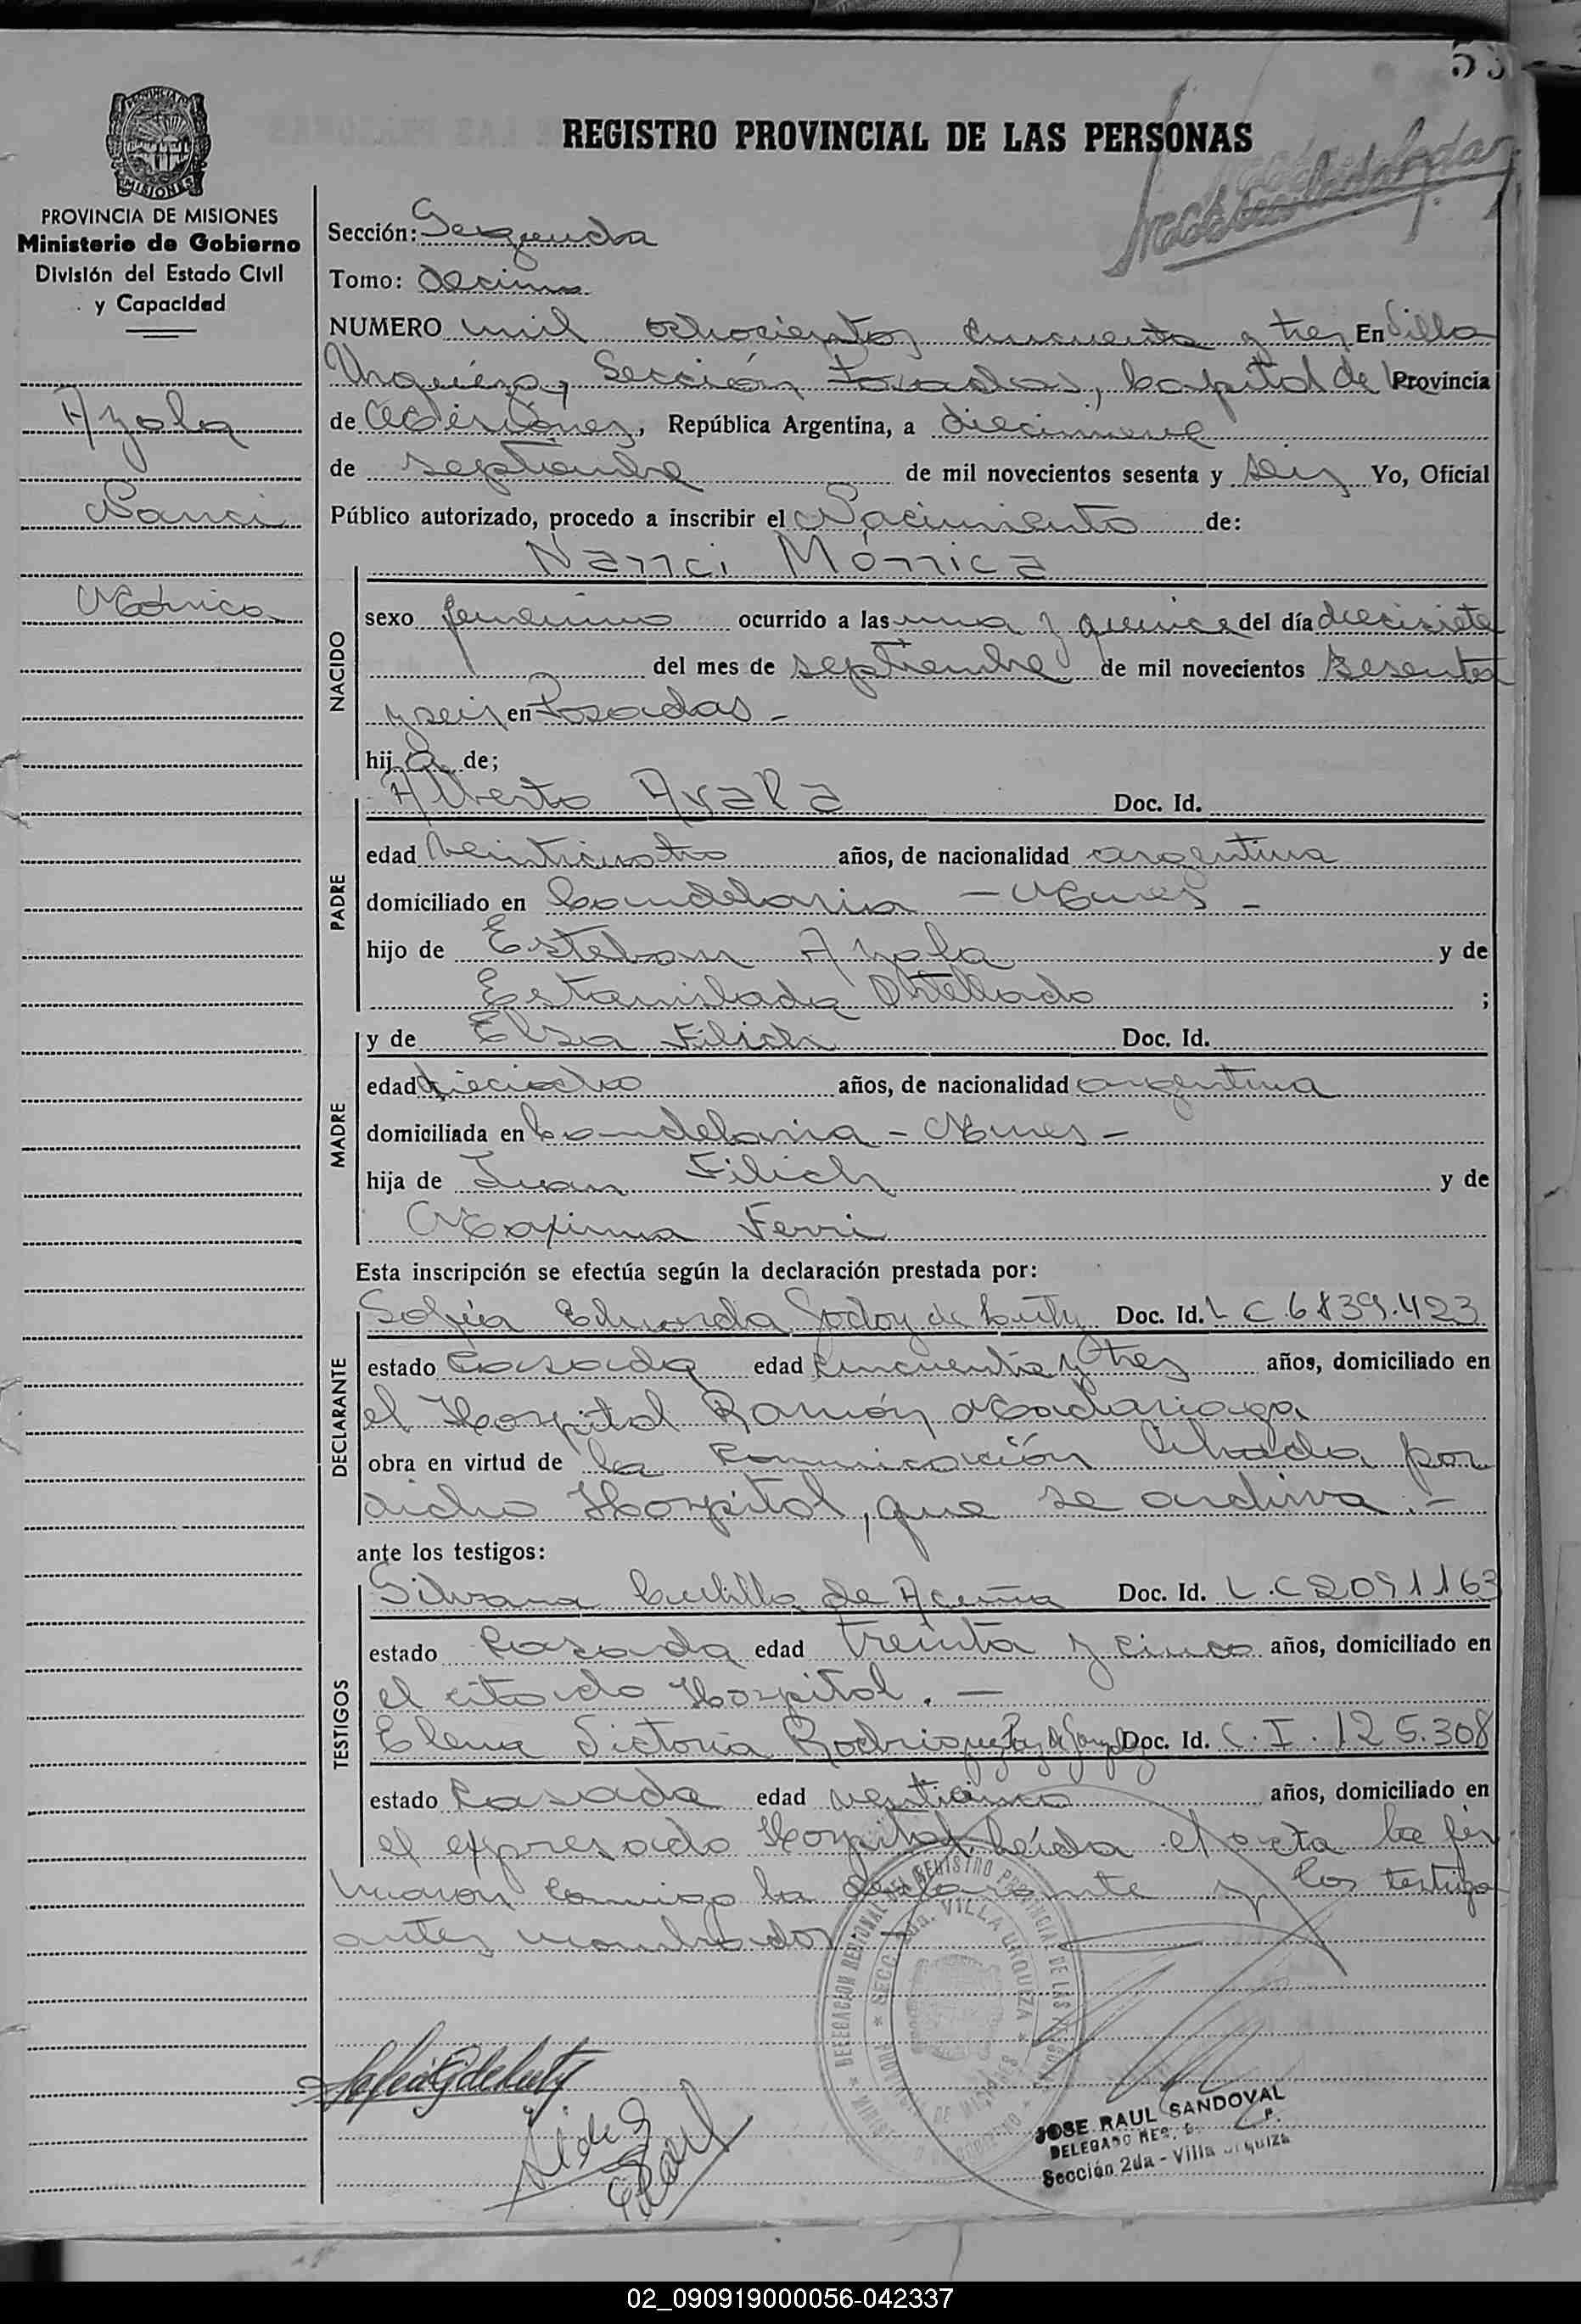 53
REGISTRO PROVINCIAL DE LAS PERSONAS
MISIONES
PROVINCIA DE MISIONES
Ministerio de Gobierno
División del Estado Civil
y Capacidad
Ayala
Nanci
Mónica
Sección: Segunda
Tomo: décimo
NUMERO mil ochocientos cincuenta y tres En Villa
Urquiza, Sección Posadas, Capital de Provincia
de Misiones, República Argentina, a diecinueve
de septiembre de mil novecientos sesenta y seis Yo, Oficial
Público autorizado, procedo a inscribir el Nacimiento de:
Nanci Mónica
NACIDO
sexo femenino ocurrido a las una y quince del día diecisiete
del mes de septiembre de mil novecientos sesenta
y seis en Posadas -
hija de;
PADRE
Alberto Ayala Doc. Id.
edad veinticuatro años, de nacionalidad argentina
domiciliado en Candelaria - Mnes -
hijo de Esteban Ayala y de
Estanislada Ortellado ;
MADRE
y de Elsa Filich Doc. Id.
edad dieciocho años, de nacionalidad argentina
domiciliada en Candelaria - Mnes -
hija de Juan Filich y de
Maxima Ferri
Esta inscripción se efectúa según la declaración prestada por:
DECLARANTE
Sofía Eduarda Godoy de Luty Doc. Id. L C 6839.423
estado casada edad cincuenta y tres años, domiciliado en
el Hospital Ramón Madariaga
obra en virtud de la comunicación librada por
dicho Hospital, que se archiva.-
ante los testigos:
TESTIGOS
Silvana Cutillo de Acuña Doc. Id. L.C 2091163
estado casada edad treinta y cinco años, domiciliado en
el citado Hospital. -
Elena Victoria Rodriguez Doc. Id. C.I. 125.308
estado casada edad venticinco años, domiciliado en
el expresado Hospital, leída el acta la fir
maron conmigo la declarante y los testigos
antes nombrados
DELEGACION REGIONAL DEL REGISTRO PROVINCIAL DE LAS
SECC. 2da. VILLA URQUIZA
Sofia G de Luty
JOSE RAUL SANDOVAL
Sección 2da - Villa Urquiza
02_090919000056-042337